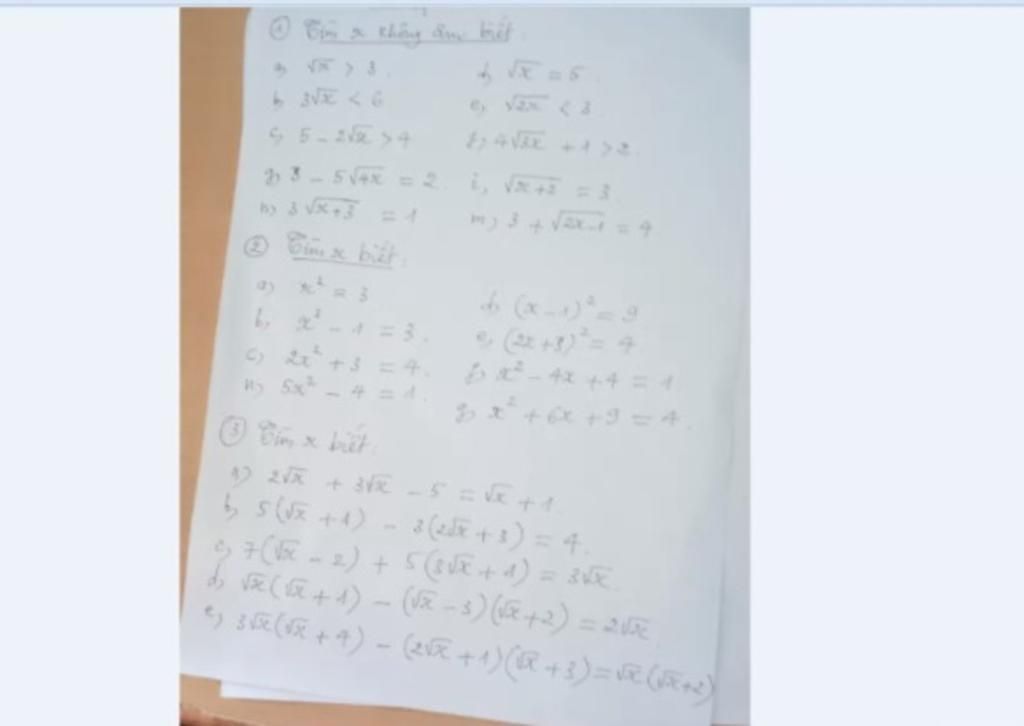 ① Tìm x không âm biết:
a) √x > 3. d) √x = 5.
b, 3√x < 6 e, √2x < 3.
c, 5 - 2√x > 4 f, 4√3x + 1 > 2.
g) 3 - 5√4x = 2. i, √x+2 = 3.
n) 3√x+3 = 1 m, 3 + √2x-1 = 4.
② Tìm x biết:
a) x² = 3 d, (x-1)² = 9
b, x² - 1 = 3. e, (2x+3)² = 4
c) 2x² + 3 = 4. f, x² - 4x + 4 = 1
n) 5x² - 4 = 1. g) x² + 6x + 9 = 4.
③ Tìm x biết:
a) 2√x + 3√x - 5 = √x + 1.
b, 5(√x + 1) - 3(2√x + 3) = 4.
c, 7(√x - 2) + 5(3√x + 1) = 3√x.
d, √x(√x + 1) - (√x - 3)(√x + 2) = 2√x.
e, 3√x(√x + 4) - (2√x + 1)(√x + 3) = √x(√x+2)